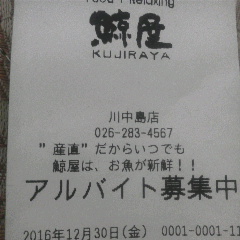 Food + Relaxing
鯨屋
KUJIRAYA
川中島店
026-283-4567
"産直"だからいつでも
鯨屋は、お魚が新鮮！！
アルバイト募集中
2016年12月30日(金) 0001-0001-11